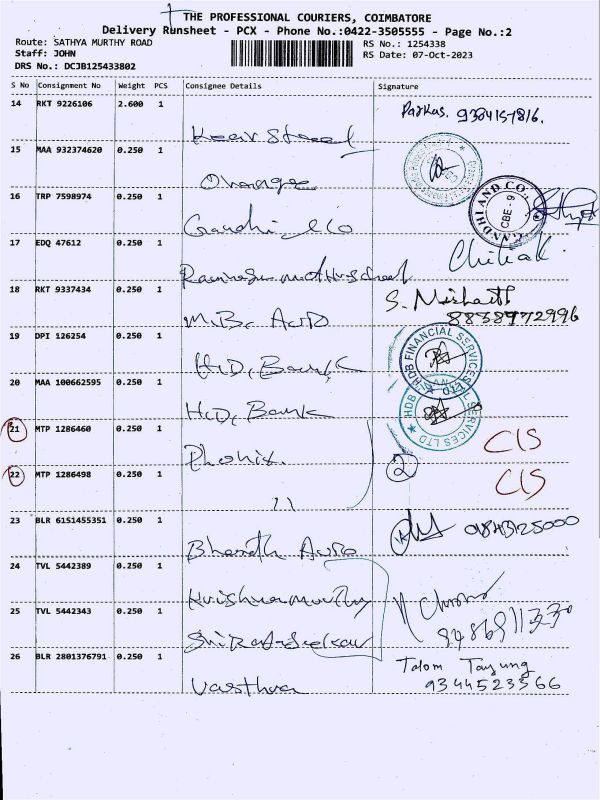 THE PROFESSIONAL COURIERS, COIMBATORE
Delivery Runsheet - PCX - Phone No.:0422-3505555 - Page No.:2
Route: SATHYA MURTHY ROAD
RS No.: 1254338
Staff: JOHN
RS Date: 07-Oct-2023
DRS No.: DCJB125433802
S No Consignment No Weight PCS Consignee Details Signature
14 RKT 9226106 2.600 1
15 MAA 932374620 0.250 1 Orange
16 TRP 7598974 0.250 1 Gandhi & Co
GANDHI AND CO. CBE - 9
17 EDQ 47612 0.250 1
18 RKT 9337434 0.250 1 M.B. Auto S. Nishanth
8838972996
19 DPI 126254 0.250 1 H.D. Bank
HDB FINANCIAL SERVICES LTD
20 MAA 100662595 0.250 1 H.D. Bank
HDB SERVICES LTD
21 MTP 1286460 0.250 1 C/S
22 MTP 1286498 0.250 1 11 2 C/S
23 BLR 6151455351 0.250 1 Bharath Auto
24 TVL 5442389 0.250 1 Krishnamurthy
25 TVL 5442343 0.250 1
26 BLR 2801376791 0.250 1 Vasthra Talom Tayung
9344523566